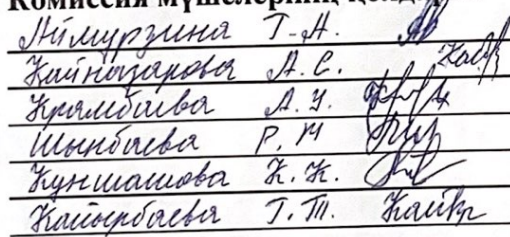 Комиссия мүшелерінің қол
Аймурзина Г.А.
Кайназарова А.С.
Крамбаева А.У.
Шынбаева Р.М
Куншашова К.К.
Кайырбаева Г.Т. Кайыр